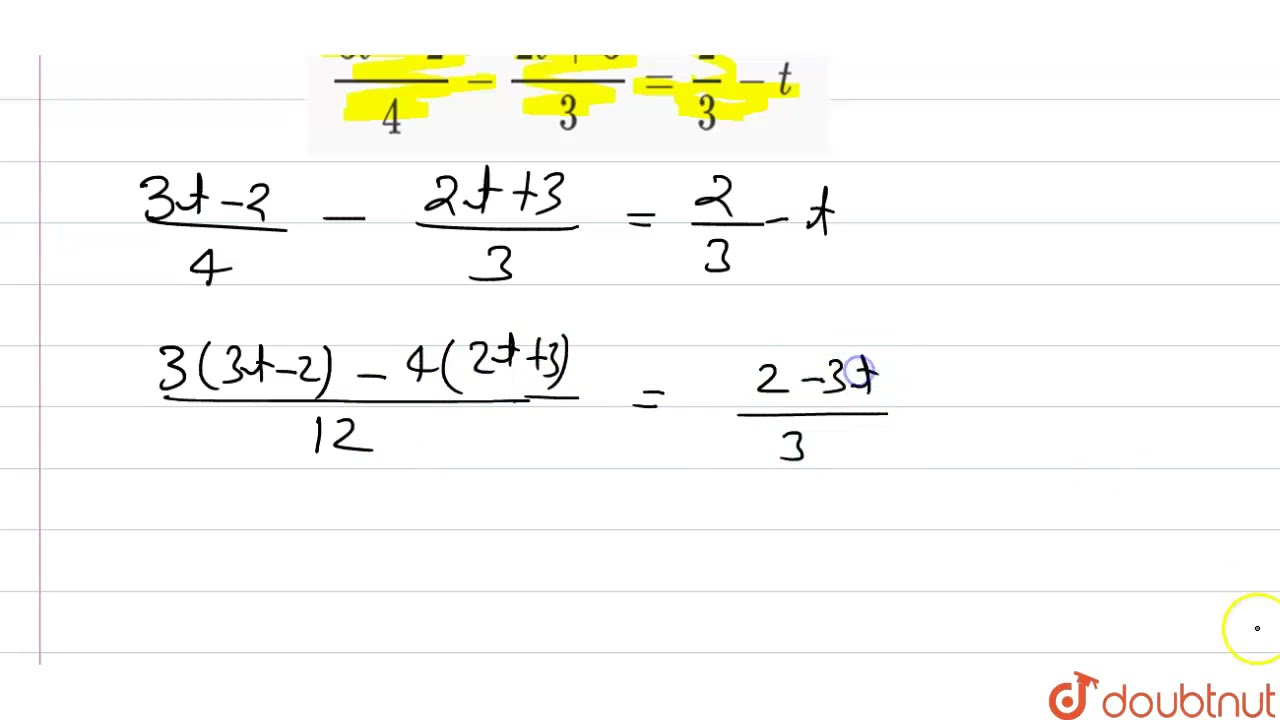 4 − 3 = 3 − t
3t-2/4 - 2t+3/3 = 2/3 - t
3(3t-2) - 4(2t+3)/12 = 2-3t/3
doubtnut